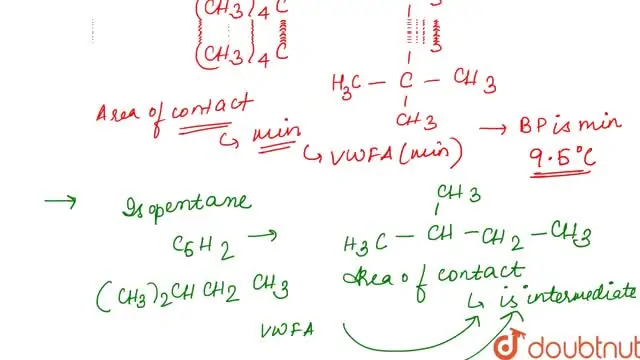 (CH3)4C
3
(CH3)4C
3
H3C — C — CH3
CH3
Area of contact
↳ min
↳ VWFA (min)
→ BP is min
9.5°C
→ Isopentane
CH3
C5H2 →
H3C — CH — CH2 — CH3
(CH3)2CH CH2 CH3
Area of contact
↳ is intermediate
VWFA
doubtnut